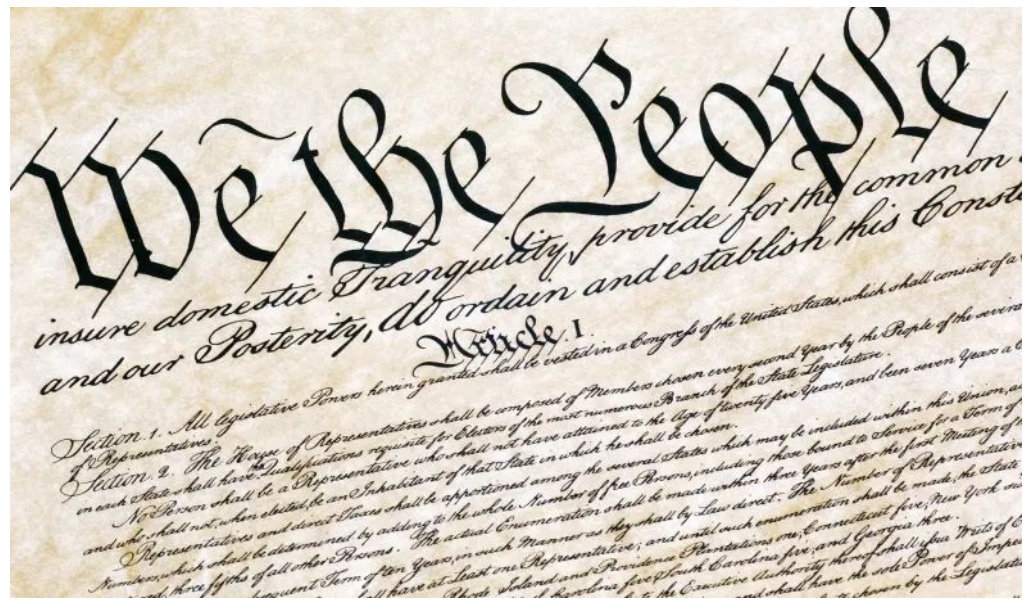 We the People
insure domestic Tranquility, provide for the common
and our Posterity, do ordain and establish this Const
Article. I.
Section. 1. All legislative Powers herein granted shall be vested in a Congress of the United States, which shall consist of a
of Representatives.
Section. 2. The House of Representatives shall be composed of Members chosen every second Year by the People of the several
in each State shall have the Qualifications requisite for Electors of the most numerous Branch of the State Legislature.
No Person shall be a Representative who shall not have attained to the Age of twenty five Years, and been seven Years a C
and who shall not, when elected, be an Inhabitant of that State in which he shall be chosen.
Representatives and direct Taxes shall be apportioned among the several States which may be included within this Union, ac
Numbers, which shall be determined by adding to the whole Number of free Persons, including those bound to Service for a Term of
three fifths of all other Persons. The actual Enumeration shall be made within three Years after the first Meeting of th
sequent Term of ten Years, in such Manner as they shall by Law direct. The Number of Representative
all have at Least one Representative; and until such enumeration shall be made, the State
Rhode Island and Providence Plantations one, Connecticut five, New York six
Carolina five, South Carolina five, and Georgia three.
the Executive Authority thereof shall issue Writs of
and shall have the sole Power of Impe
chosen by the Legislatu